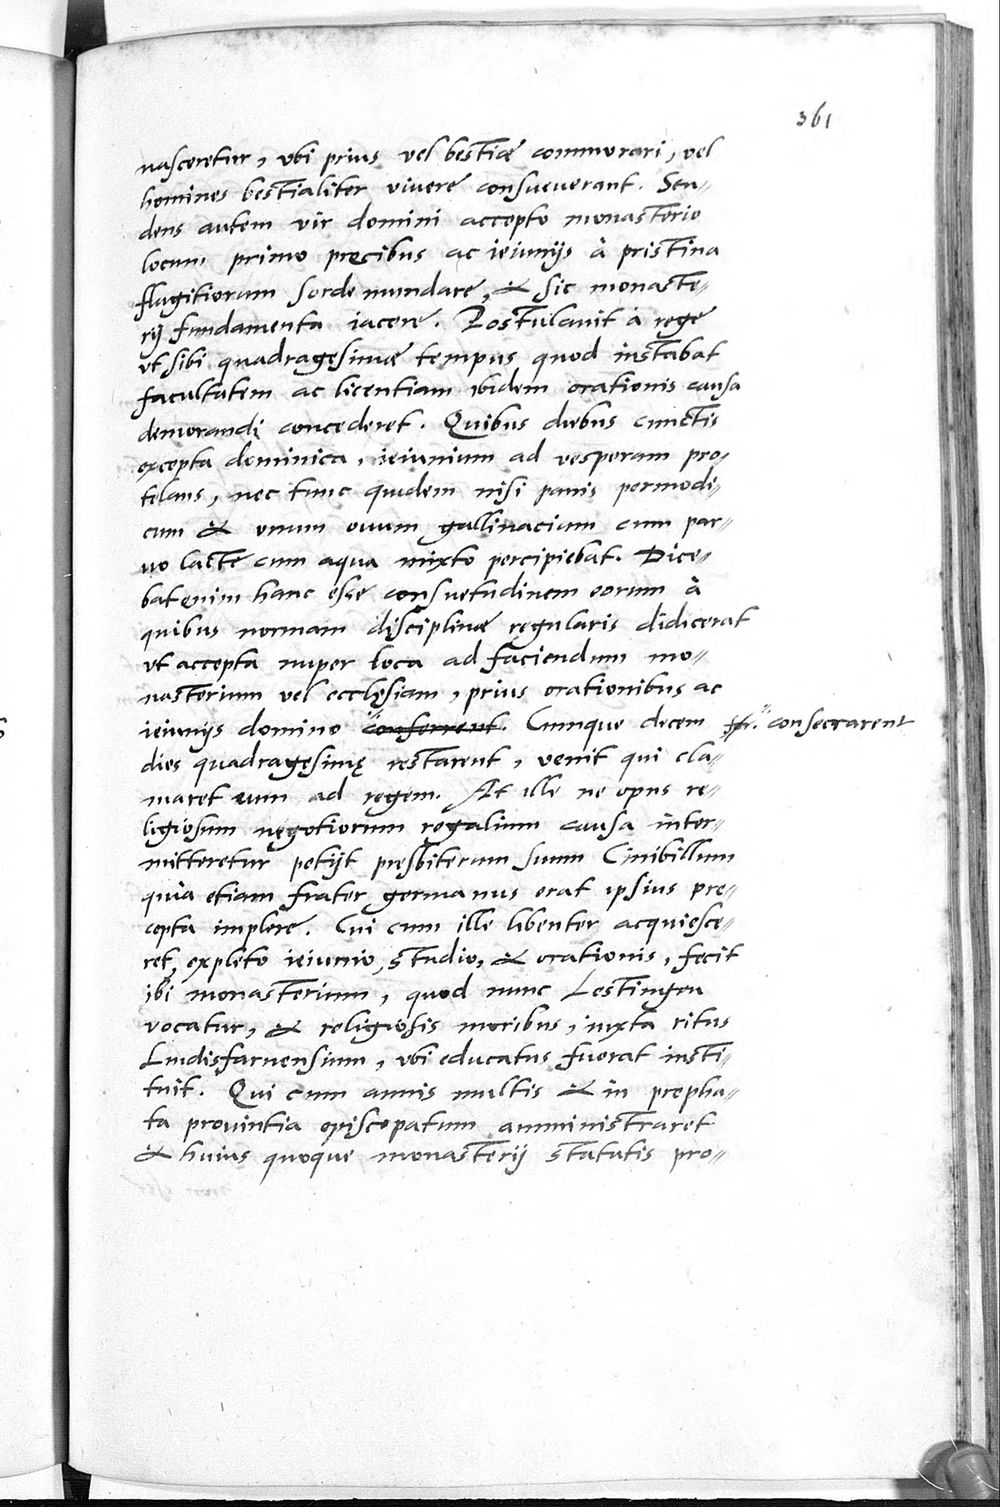 361
nasceretur, vbi prius vel bestiæ commorari, vel
homines bestialiter viuere consueuerant. Stu-
dens autem vir domini accepto monasterio
locum primo precibus ac ieiunijs à pristina
flagitiorum sorde mundare, & sic monaste-
rij fundamenta iacere. Postulauit à rege
vt sibi quadragesimæ tempus quod instabat
facultatem ac licentiam ibidem orationis causa
demorandi concederet. Quibus diebus cunctis
excepta dominica, ieiunium ad vesperam pro-
telans, nec tunc quidem nisi panis permodi-
cum & vnum ouum gallinacium cum par-
uo lacte cum aqua mixto percipiebat. Dice-
bat enim hanc esse consuetudinem eorum à
quibus normam disciplinæ regularis didicerat
vt accepta nuper loca ad faciendum mo-
nasterium vel ecclesiam, prius orationibus ac
ieiunijs domino conferrent. Cumque decem consecrarent
dies quadragesimę restarent, venit qui cla-
maret eum ad regem. At ille ne opus re-
ligiosum negotiorum regalium causa inter-
mitteretur petijt presbiterum suum Cinibillum
quia etiam frater germanus erat ipsius pre-
cepta implere. Cui cum ille libenter acquiesce-
ret, expleto ieiunio, studio, & orationis, fecit
ibi monasterium, quod nunc Lestingen
vocatur, & religiosis moribus, iuxta ritus
Lindisfarnensium, vbi educatus fuerat insti-
tuit. Qui cum annis multis & in prepha-
ta prouintia episcopatum amministraret
& huius quoque monasterij statutis pro-